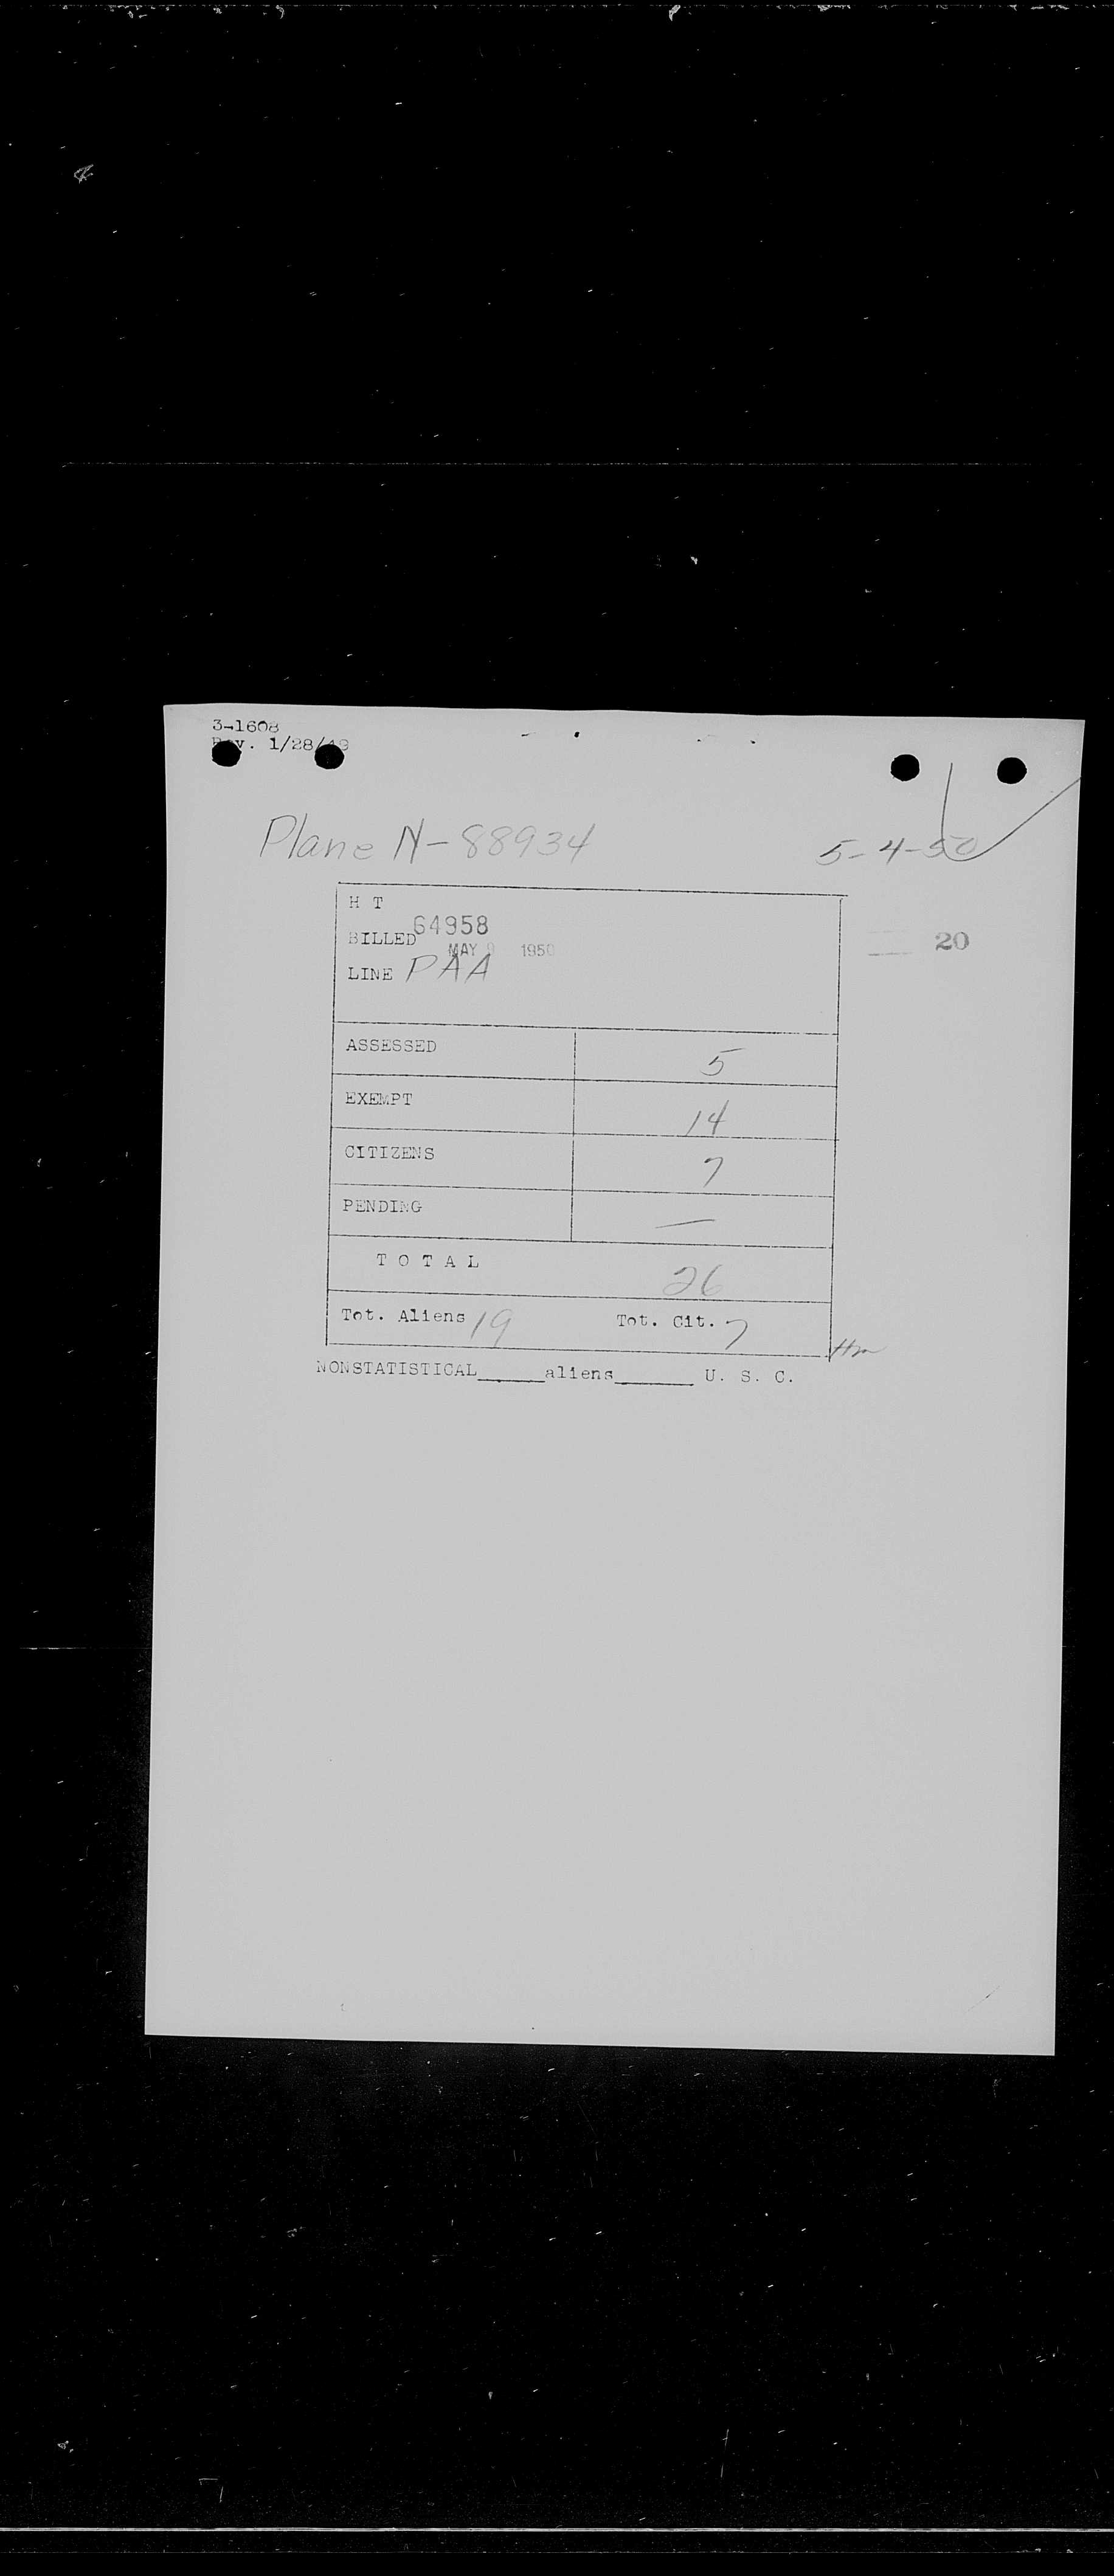 3-1608
Rev. 1/28/49
Plane N-88934 5-4-50
H T
BILLED 64958
MAY 9 1950
20
LINE PAA
ASSESSED 5
EXEMPT 14
CITIZENS 7
PENDING —
T O T A L 26
Tot. Aliens 19 Tot. Cit. 7
NONSTATISTICAL_____aliens______ U. S. C.